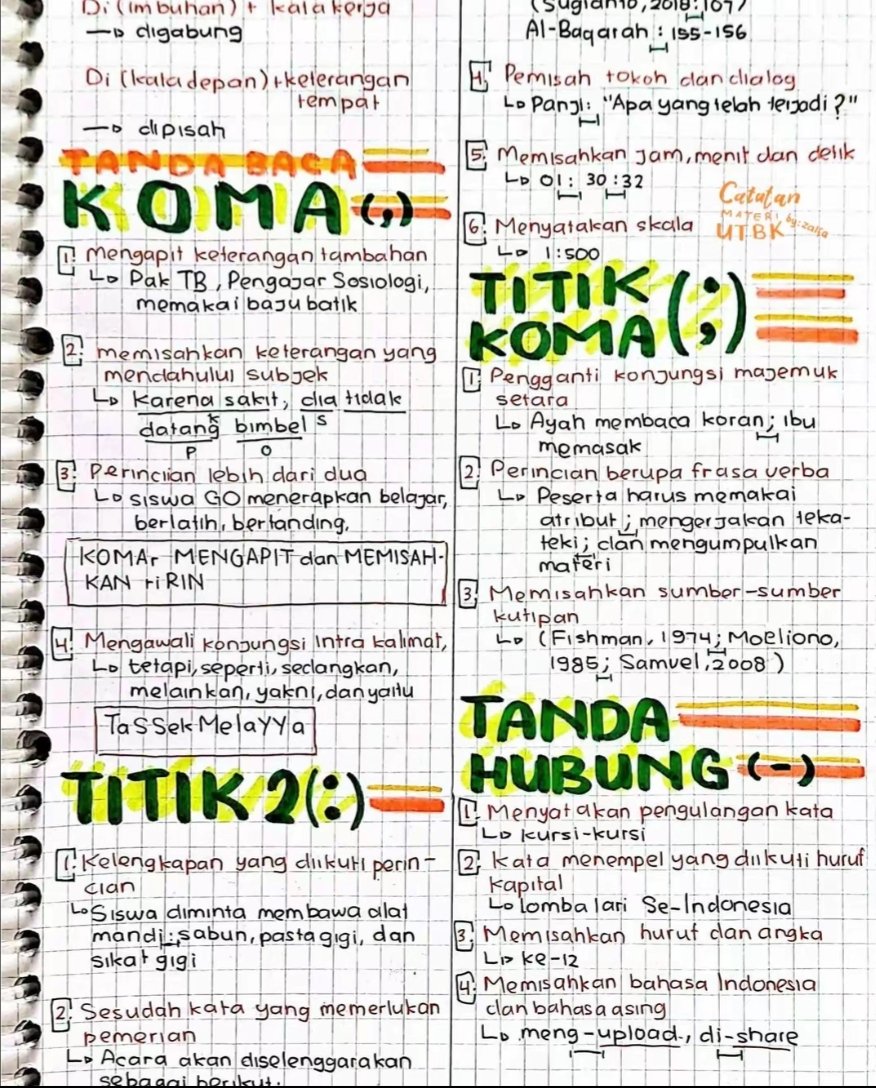 Di (imbuhan) + kata kerja
→ digabung
Di (kata depan)+keterangan
tempat
→ dipisah
TANDA BACA
KOMA (,)
1. Mengapit keterangan tambahan
↳ Pak TB, Pengajar Sosiologi,
memakai baju batik
2. memisahkan keterangan yang
mendahului subjek
↳ Karena sakit, dia tidak
K S
datang bimbel
P O
3. Perincian lebih dari dua
↳ siswa GO menerapkan belajar,
berlatih, bertanding,
KOMAr MENGAPIT dan MEMISAH-
KAN riRIN
4. Mengawali konjungsi intra kalimat,
↳ tetapi, seperti, sedangkan,
melainkan, yakni, dan yaitu
TaSSekMelaYYa
TITIK 2 (:)
1. Kelengkapan yang diikuti perin-
cian
↳ Siswa diminta membawa alat
mandi: sabun, pasta gigi, dan
sikat gigi
2. Sesudah kata yang memerlukan
pemerian
↳ Acara akan diselenggarakan
sebagai berikut:
(Sugianto, 2018:107)
Al-Baqarah: 155-156
4. Pemisah tokoh dan dialog
↳ Panji: "Apa yang telah terjadi?"
5. Memisahkan jam, menit dan detik
↳ 01:30:32
Catatan
MATERI
UTBK by:zalfa
6. Menyatakan skala
↳ 1:500
TITIK
KOMA (;)
1. Pengganti konjungsi majemuk
setara
↳ Ayah membaca koran; ibu
memasak
2. Perincian berupa frasa verba
↳ Peserta harus memakai
atribut; mengerjakan teka-
teki; dan mengumpulkan
materi
3. Memisahkan sumber-sumber
kutipan
↳ (Fishman, 1974; Moeliono,
1985; Samuel, 2008)
TANDA
HUBUNG (-)
1. Menyatakan pengulangan kata
↳ kursi-kursi
2. Kata menempel yang diikuti huruf
kapital
↳ lomba lari Se-Indonesia
3. Memisahkan huruf dan angka
↳ ke-12
4. Memisahkan bahasa Indonesia
dan bahasa asing
↳ meng-upload, di-share